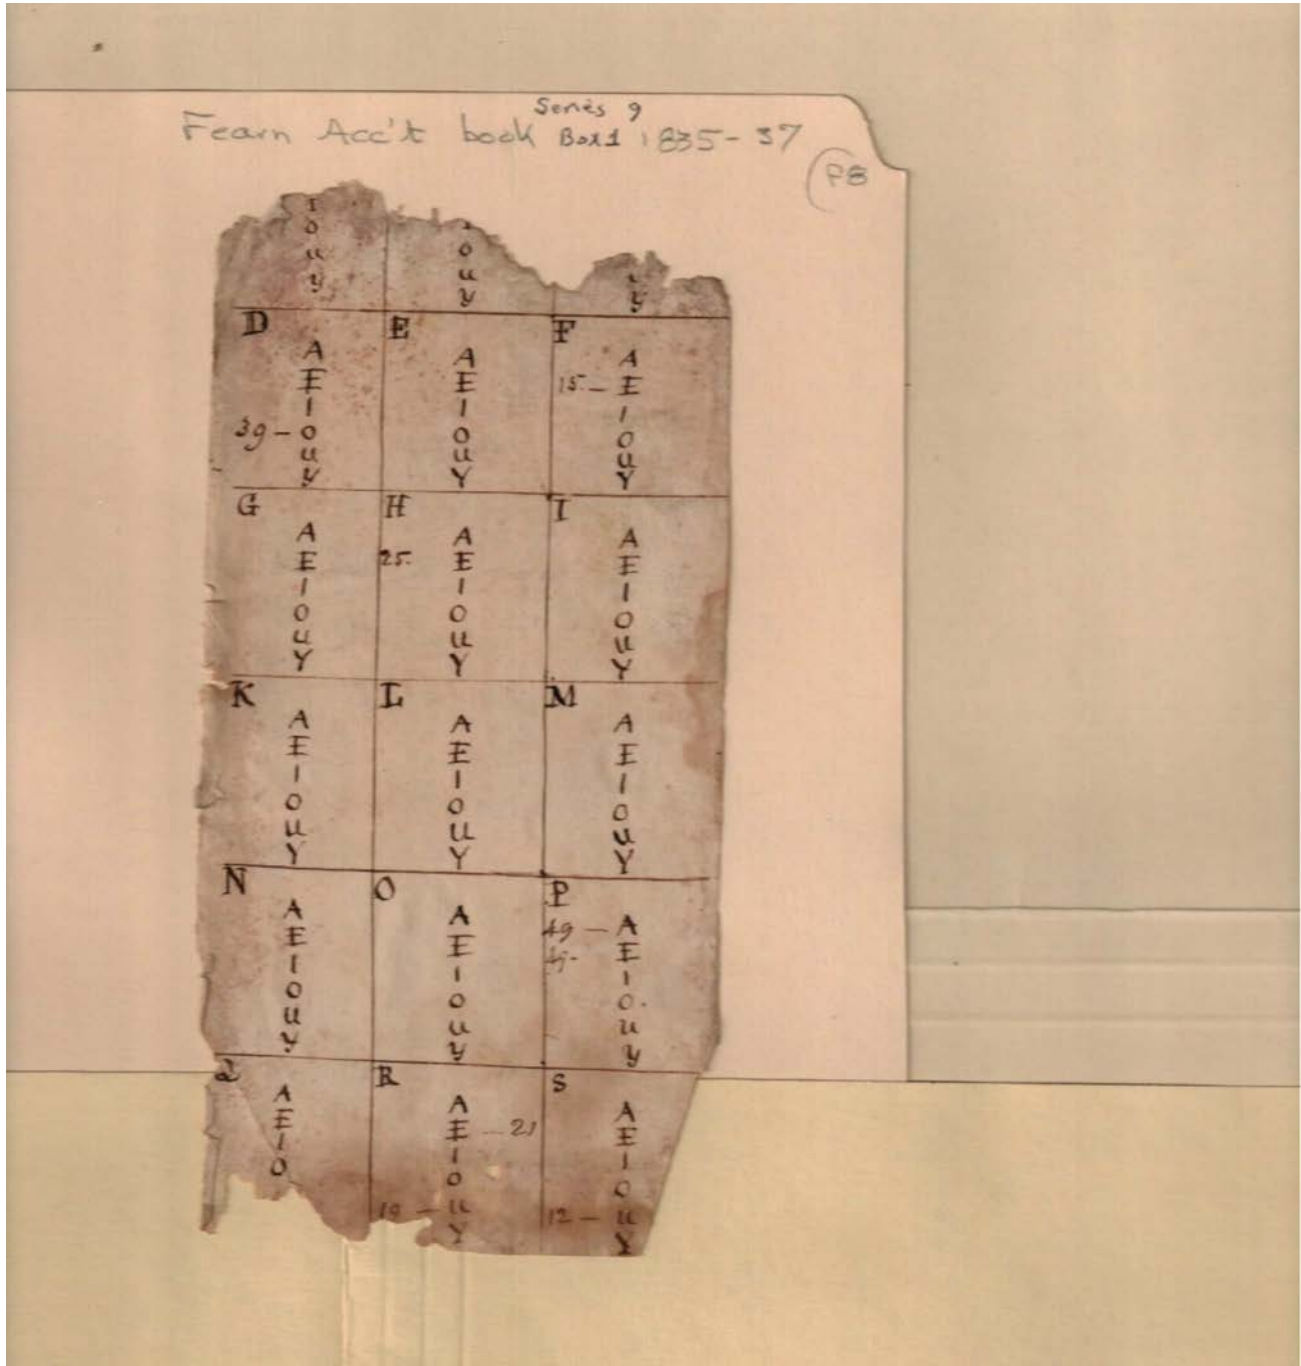 Series 9
Fearn Acc't book Box 1 1835-37
F8
I
o
u
y
o
u
y
y
D
A
E
I
39 - o
u
y
E
A
E
I
O
u
Y
F
A
15. - E
I
O
u
Y
G
A
E
I
O
u
Y
H
A
25. E
I
O
u
Y
I
A
E
I
O
u
Y
K
A
E
I
O
u
Y
L
A
E
I
O
u
Y
M
A
E
I
O
u
Y
N
A
E
I
O
u
y
O
A
E
I
O
u
y
P
49 - A
E
I
O
u
y
Q
A
E
I
O
R
A
E - 21
I
O
19 - u
Y
S
A
E
I
O
12 - u
Y